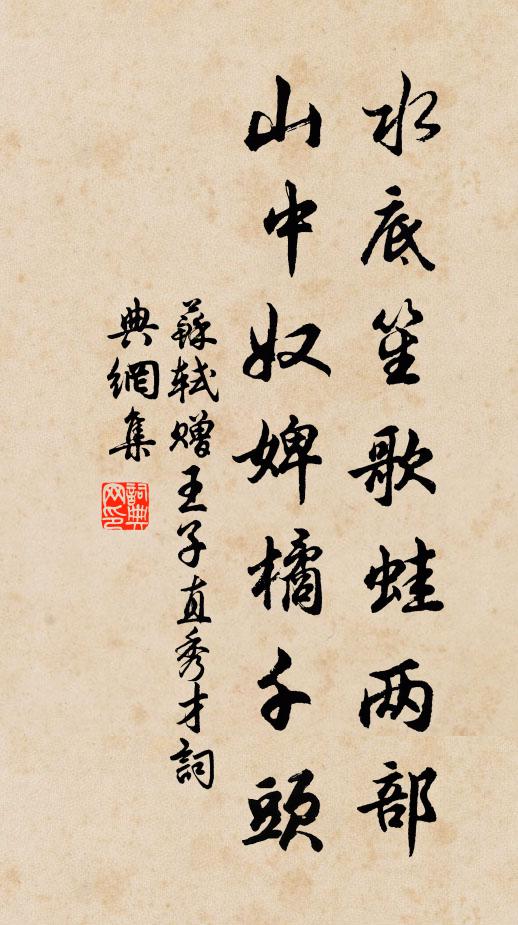 水底笙歌蛙两部
山中奴婢橘千頭
蘇軾赠王子直秀才詞
典網集
詞典网印